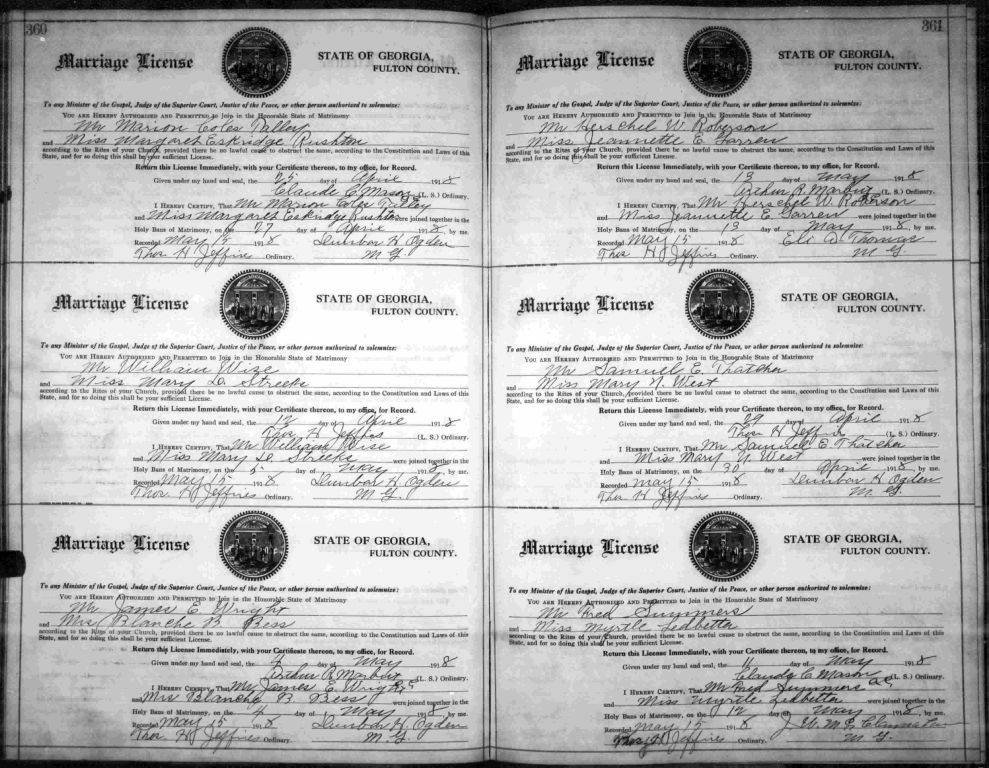 360
Marriage License
STATE OF GEORGIA,
FULTON COUNTY.
To any Minister of the Gospel, Judge of the Superior Court, Justice of the Peace, or other person authorized to solemnize:
YOU ARE HEREBY AUTHORIZED AND PERMITTED to Join in the Honorable State of Matrimony
Mr Marion Coles Talley
and Miss Margaret Eskridge Rushton
according to the Rites of your Church, provided there be no lawful cause to obstruct the same, according to the Constitution and Laws of this
State, and for so doing this shall be your sufficient License.
Return this License Immediately, with your Certificate thereon, to my office, for Record.
Given under my hand and seal, the 25 day of April 1918
Claude C. Mason (L. S.) Ordinary.
I HEREBY CERTIFY, That Mr Marion Coles Talley
and Miss Margaret Eskridge Rushton were joined together in the
Holy Bans of Matrimony, on the 27 day of April 1918, by me.
Recorded May 15 1918 Dunbar H Ogden
Thos H Jeffries Ordinary. M G.
Marriage License
STATE OF GEORGIA,
FULTON COUNTY.
To any Minister of the Gospel, Judge of the Superior Court, Justice of the Peace, or other person authorized to solemnize:
YOU ARE HEREBY AUTHORIZED AND PERMITTED to Join in the Honorable State of Matrimony
Mr William Wize
and Miss Mary D. Strecke
according to the Rites of your Church, provided there be no lawful cause to obstruct the same, according to the Constitution and Laws of this
State, and for so doing this shall be your sufficient License.
Return this License Immediately, with your Certificate thereon, to my office, for Record.
Given under my hand and seal, the 12 day of April 1918
Thos H Jeffries (L. S.) Ordinary.
I HEREBY CERTIFY, That Mr William Wise
and Miss Mary D. Strecke were joined together in the
Holy Bans of Matrimony, on the 5 day of May 1918, by me.
Recorded May 15 1918 Dunbar H Ogden
Thos H Jeffries Ordinary. M G.
Marriage License
STATE OF GEORGIA,
FULTON COUNTY.
To any Minister of the Gospel, Judge of the Superior Court, Justice of the Peace, or other person authorized to solemnize:
YOU ARE HEREBY AUTHORIZED AND PERMITTED to Join in the Honorable State of Matrimony
Mr James E. Wright
and Mrs Blanche B Bess
according to the Rites of your Church, provided there be no lawful cause to obstruct the same, according to the Constitution and Laws of this
State, and for so doing this shall be your sufficient License.
Return this License Immediately, with your Certificate thereon, to my office, for Record.
Given under my hand and seal, the 4 day of May 1918
Arthur R Marbut (L. S.) Ordinary.
I HEREBY CERTIFY, That Mr James E. Wright
and Mrs Blanche B. Bess were joined together in the
Holy Bans of Matrimony, on the 4 day of May 1918, by me.
Recorded May 15 1918 Dunbar H Ogden
Thos H Jeffries Ordinary. M G.
361
Marriage License
STATE OF GEORGIA,
FULTON COUNTY.
To any Minister of the Gospel, Judge of the Superior Court, Justice of the Peace, or other person authorized to solemnize:
YOU ARE HEREBY AUTHORIZED AND PERMITTED to Join in the Honorable State of Matrimony
Mr Herschel W. Roberson
and Miss Jeannette E. Garren
according to the Rites of your Church, provided there be no lawful cause to obstruct the same, according to the Constitution and Laws of this
State, and for so doing this shall be your sufficient License.
Return this License Immediately, with your Certificate thereon, to my office, for Record.
Given under my hand and seal, the 13 day of May 1918
Arthur R. Marbut (L. S.) Ordinary.
I HEREBY CERTIFY, That Mr Herschel W. Roberson
and Miss Jeannette E. Garren were joined together in the
Holy Bans of Matrimony, on the 13 day of May 1918, by me.
Recorded May 15 1918 Eli D. Thomas
Thos H Jeffries Ordinary. M G.
Marriage License
STATE OF GEORGIA,
FULTON COUNTY.
To any Minister of the Gospel, Judge of the Superior Court, Justice of the Peace, or other person authorized to solemnize:
YOU ARE HEREBY AUTHORIZED AND PERMITTED to Join in the Honorable State of Matrimony
Mr Samuel E. Thatcher
and Miss Mary N. West
according to the Rites of your Church, provided there be no lawful cause to obstruct the same, according to the Constitution and Laws of this
State, and for so doing this shall be your sufficient License.
Return this License Immediately, with your Certificate thereon, to my office, for Record.
Given under my hand and seal, the 29 day of April 1918
Thos H Jeffries (L. S.) Ordinary.
I HEREBY CERTIFY, That Mr Samuel E Thatcher
and Miss Mary N. West were joined together in the
Holy Bans of Matrimony, on the 30 day of April 1918, by me.
Recorded May 15 1918 Dunbar H Ogden
Thos H Jeffries Ordinary. M G.
Marriage License
STATE OF GEORGIA,
FULTON COUNTY.
To any Minister of the Gospel, Judge of the Superior Court, Justice of the Peace, or other person authorized to solemnize:
YOU ARE HEREBY AUTHORIZED AND PERMITTED to Join in the Honorable State of Matrimony
Mr Fred Summers
and Miss Myrtle Ledbetter
according to the Rites of your Church, provided there be no lawful cause to obstruct the same, according to the Constitution and Laws of this
State, and for so doing this shall be your sufficient License.
Return this License Immediately, with your Certificate thereon, to my office, for Record.
Given under my hand and seal, the 11 day of May 1918
Claude C. Mason (L. S.) Ordinary.
I HEREBY CERTIFY, That Mr Fred Summers
and Miss Myrtle Ledbetter were joined together in the
Holy Bans of Matrimony, on the 12 day of May 1918, by me.
Recorded May 15 1918
Thos H Jeffries Ordinary. M G.